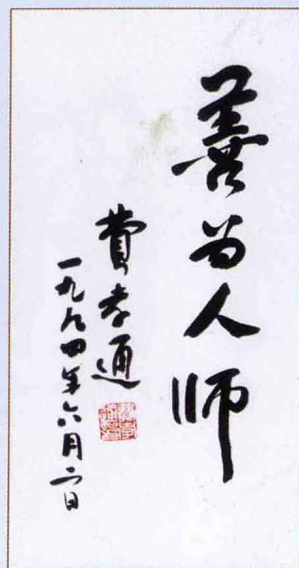 善为人师
费孝通
一九九四年六月二日